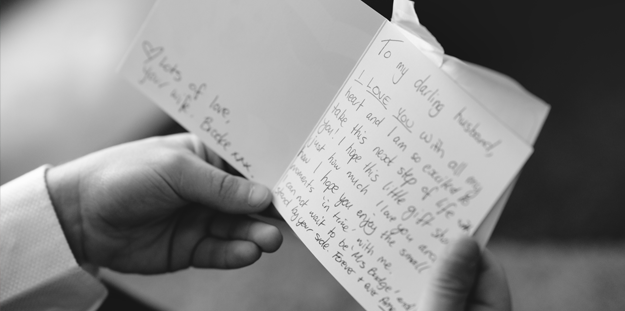 ♡ Lots of love,
your wife
Brodge xxx
To my darling husband,
I LOVE YOU with all my
heart and I am so excited to
take this next step of life
you! I hope this little gift
just how much I love you
I hope you enjoy the small
moments 'in time' with me.
can not wait to be 'Mrs Brodge' and
by your side. Forever + ever